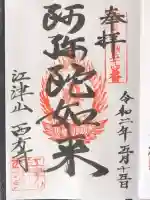 奉拝
令和二年五月十三日
阿弥陀如来
江津山 西方寺